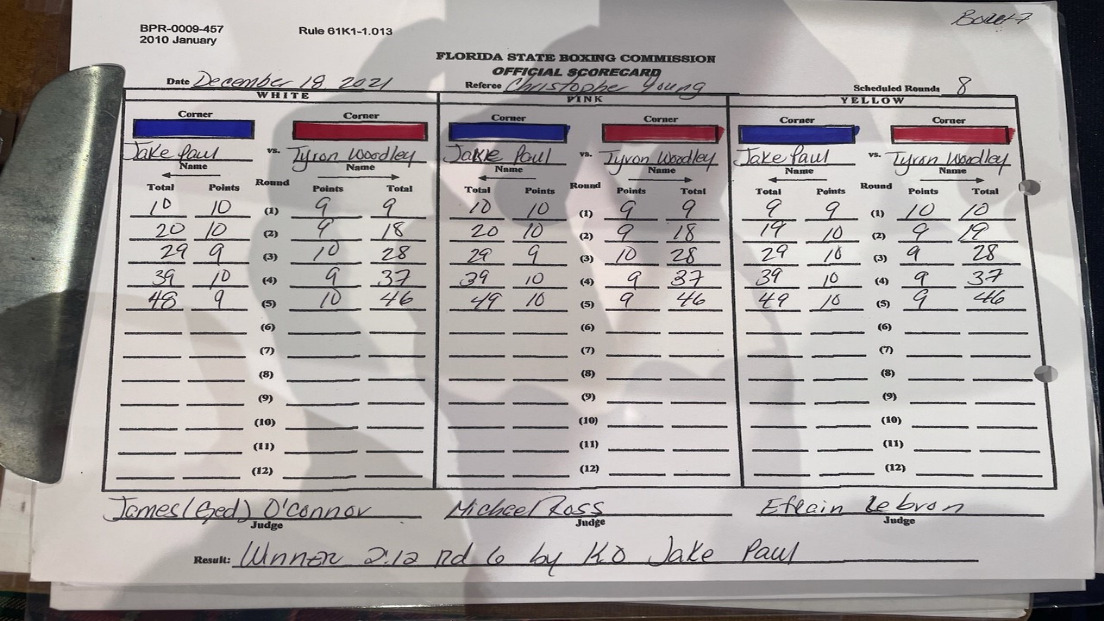 Bout 7
BPR-0009-457 Rule 61K1-1.013
2010 January
FLORIDA STATE BOXING COMMISSION
OFFICIAL SCORECARD
Date December 18 2021 Referee Christopher Young Scheduled Rounds 8
WHITE PINK YELLOW
Corner Corner Corner Corner Corner Corner
Jake Paul vs. Tyron Woodley Jake Paul vs. Tyron Woodley Jake Paul vs. Tyron Woodley
Name Name Name Name Name Name
Total Points Round Points Total Total Points Round Points Total Total Points Round Points Total
10 10 (1) 9 9 10 10 (1) 9 9 9 9 (1) 10 10
20 10 (2) 9 18 20 10 (2) 9 18 19 10 (2) 9 19
29 9 (3) 10 28 29 9 (3) 10 28 29 10 (3) 9 28
39 10 (4) 9 37 39 10 (4) 9 37 39 10 (4) 9 37
48 9 (5) 10 46 49 10 (5) 9 46 49 10 (5) 9 46
(6) (6) (6)
(7) (7) (7)
(8) (8) (8)
(9) (9) (9)
(10) (10) (10)
(11) (11) (11)
(12) (12) (12)
James (Ged) O'Connor Michael Ross Efrain Lebron
Judge Judge Judge
Result: Winner 2:12 rd 6 by KO Jake Paul